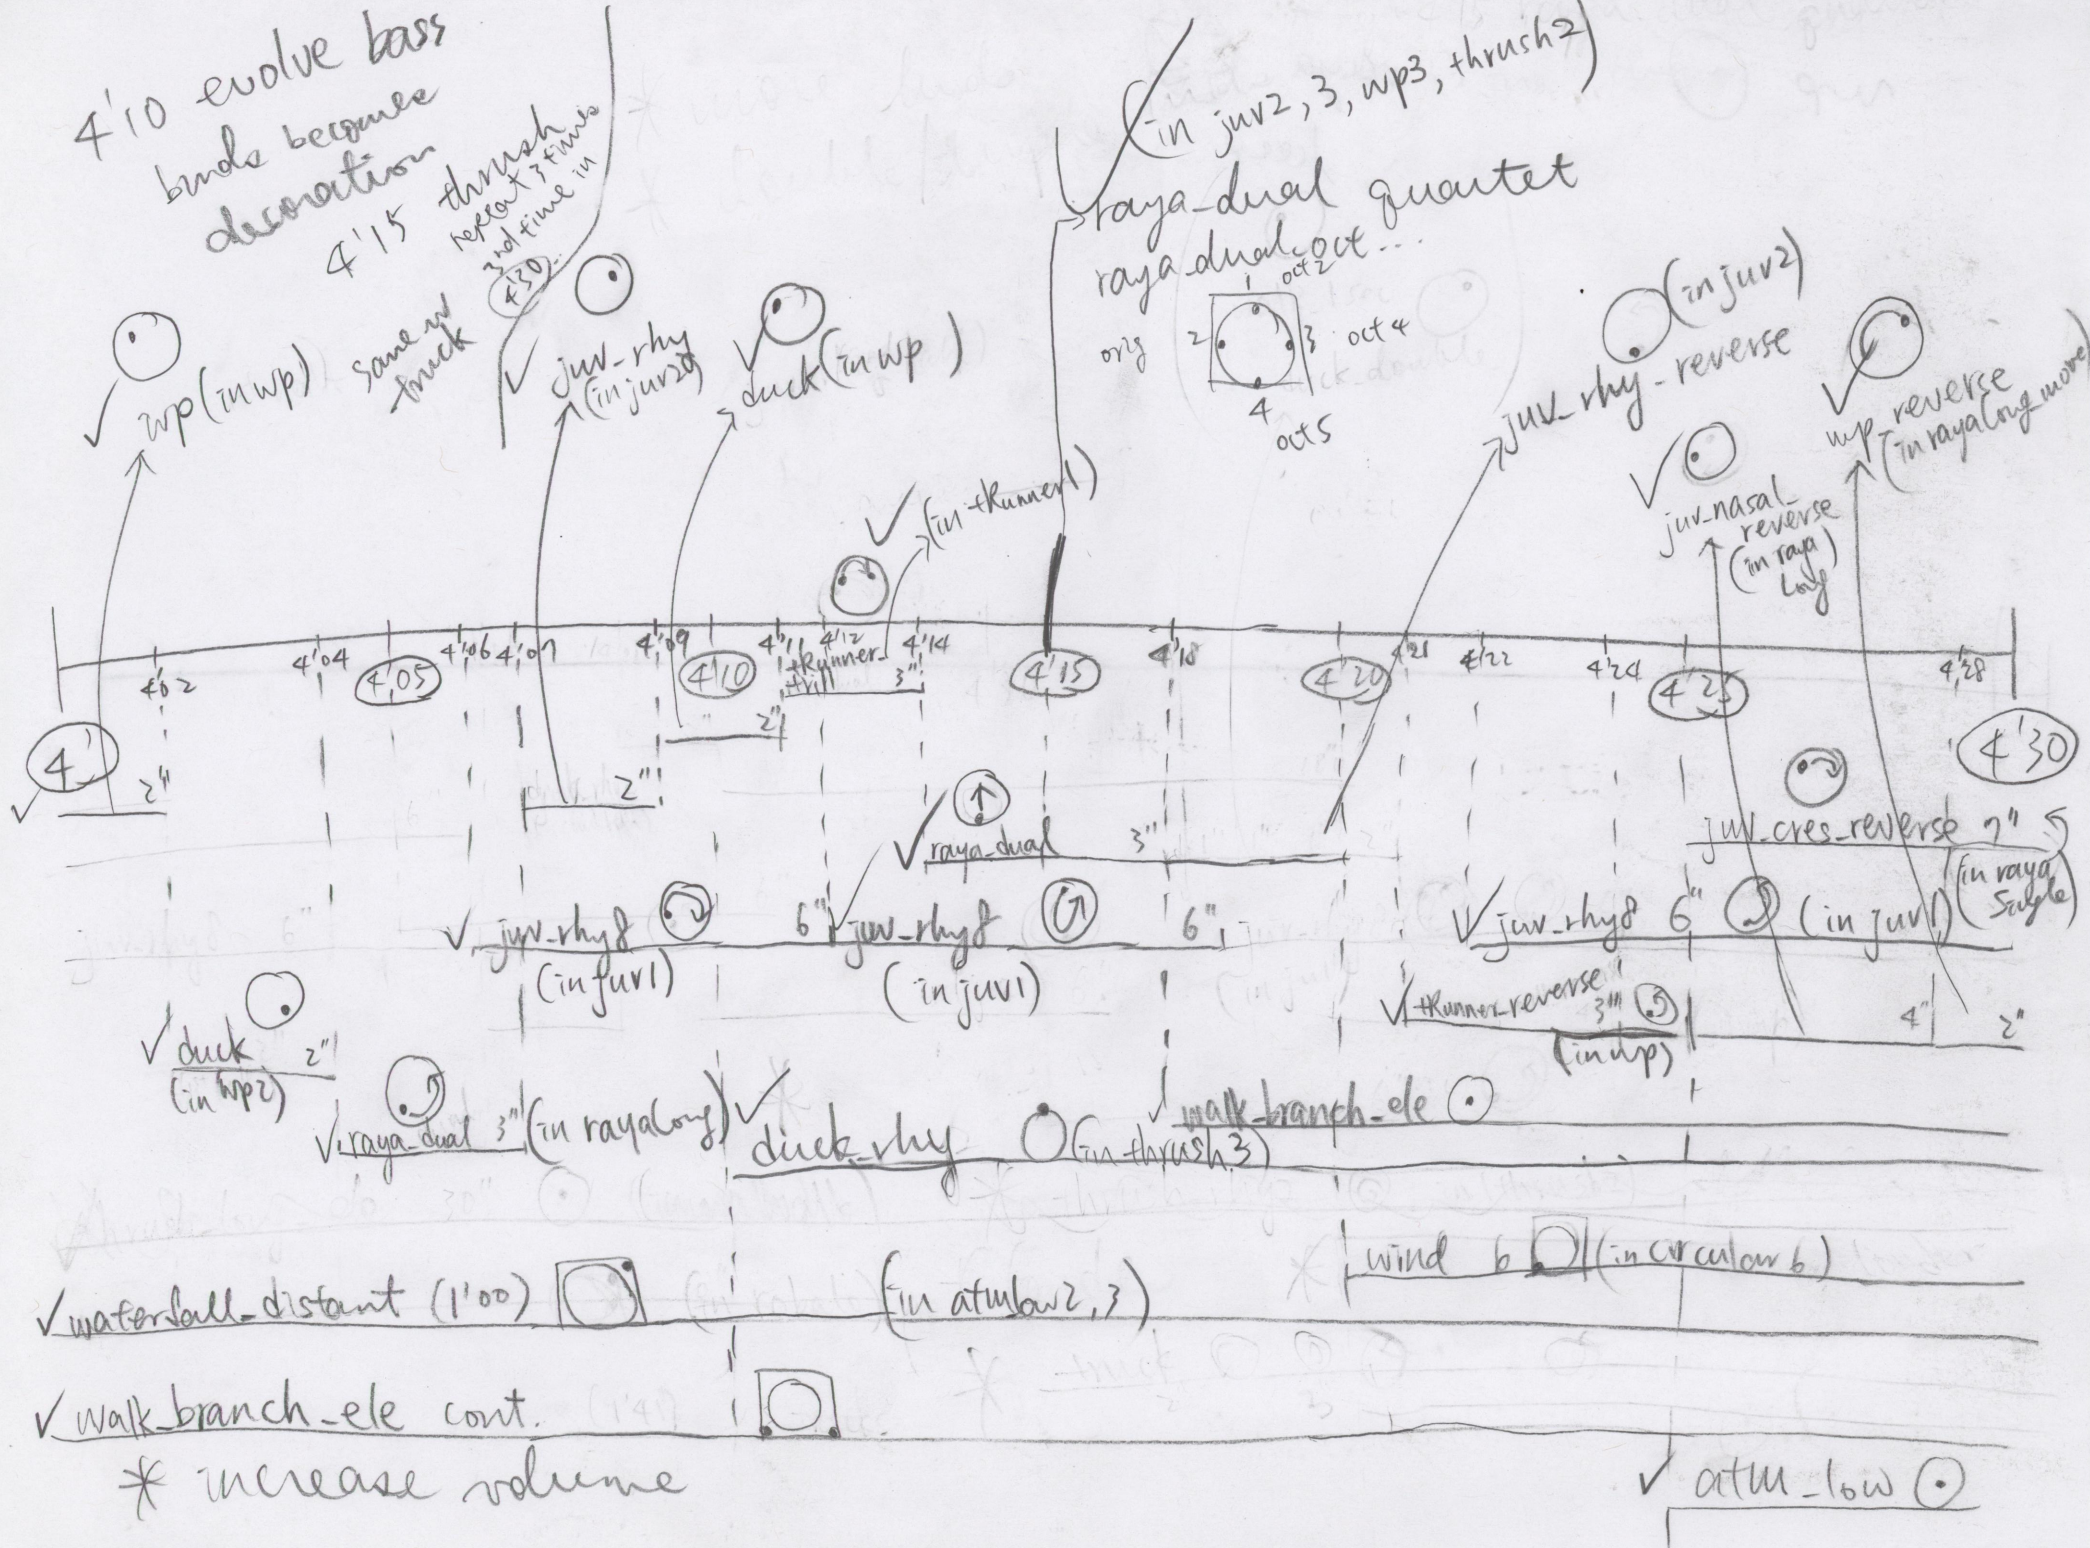 4'10 evolve bass
birds becomes
decoration
4'15 thrush
repeat 3 times
2nd time in
4'30
same w
truck
(in juv2, 3, wp3, thrush2)
raya_dual quartet
raya_dual_oct...
1 oct2
orig 2 3 oct4
4
oct5
wp (in wp)
juv_rhy
(in juv2)
duck (in wp)
(in tRunner1)
(in juv2)
juv_rhy_reverse
juv_nasal_
reverse
(in raya
long)
wp_reverse
(in rayalong_move)
4' 4'02 4'04 4'05 4'06 4'07 4'09 4'10 4'11 4'12 4'14 4'15 4'18 4'20 4'21 4'22 4'24 4'25 4'28 4'30
tRunner_
trill 3"
2"
2"
2"
raya_dual 3"
juv_cres_reverse 7"
(in raya
single)
juv_rhy8 6"
(in juv1)
juv_rhy8 6"
(in juv1)
juv_rhy8 6" (in juv1)
tRunner_reverse
3"
(in wp)
4" 2"
duck 2"
(in wp2)
raya_dual 3" (in rayalong)
duck_rhy (in thrush3)
walk_branch_ele
wind 6 (in circular6)
waterfall_distant (1'00) (in atmlow2,3)
walk_branch_ele cont.
* increase volume
atm_low